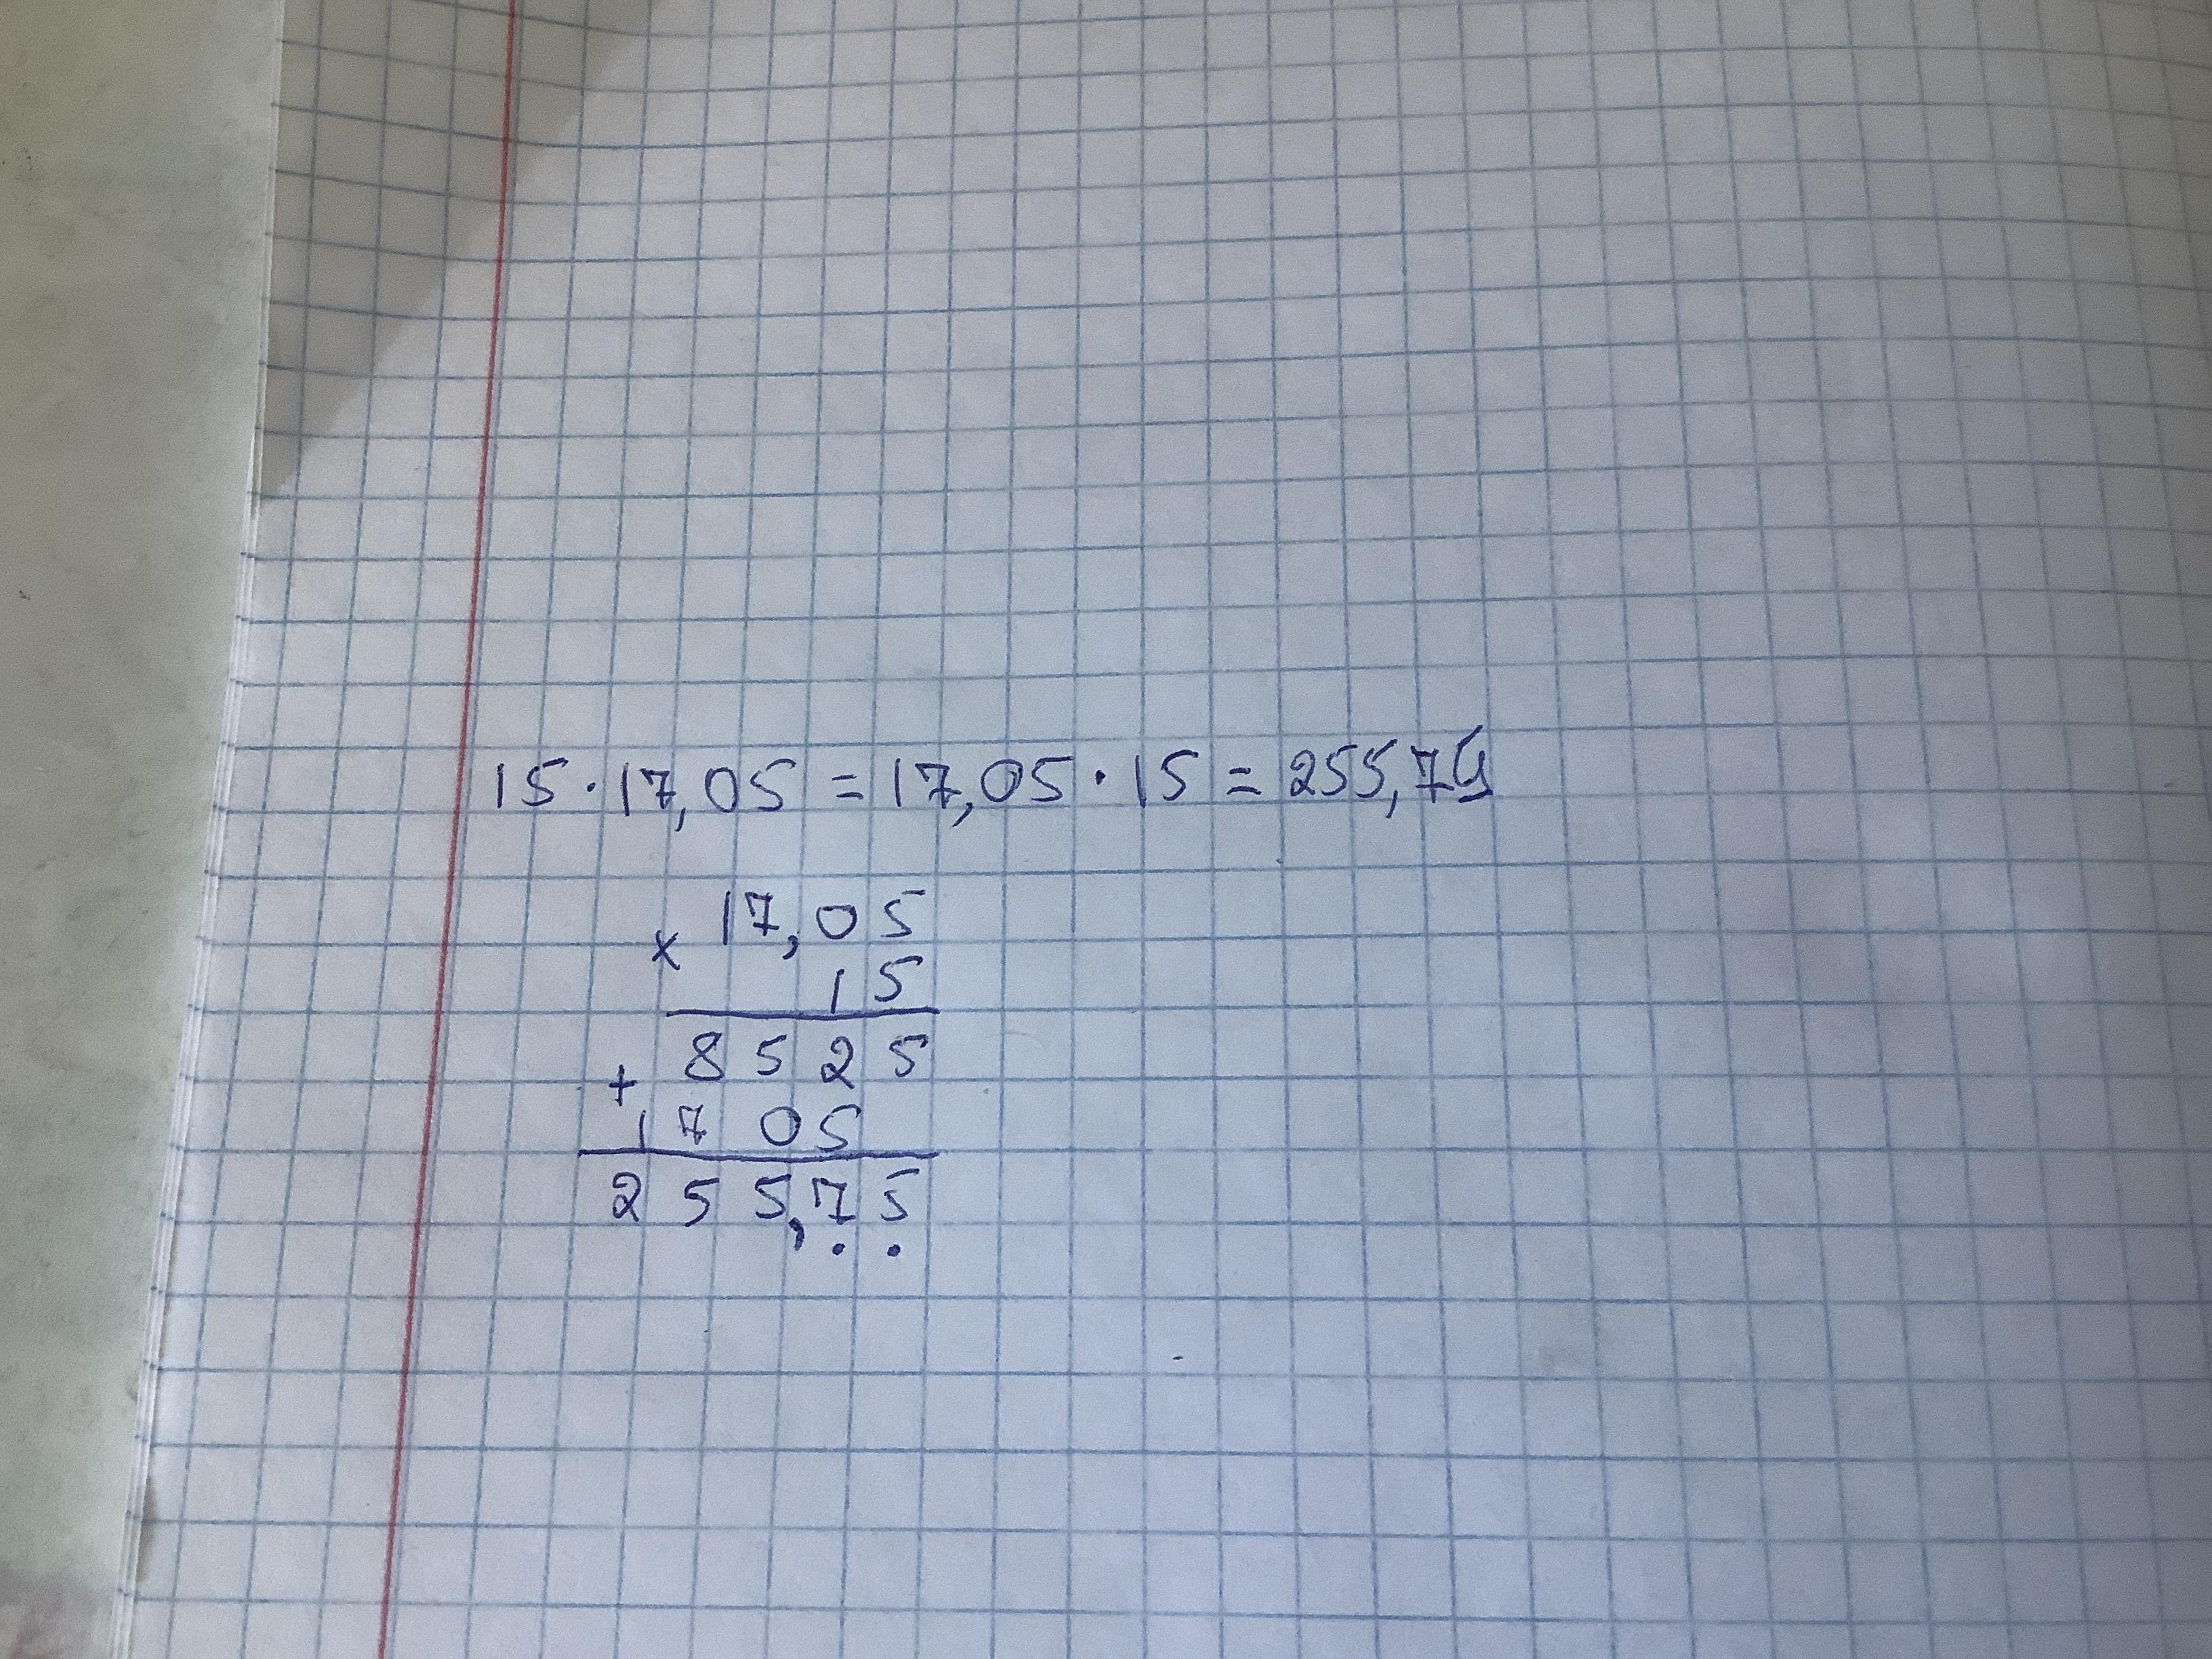 15·17,05 = 17,05·15 = 255,75
× 17,05
15
+ 8525
1705
255,75